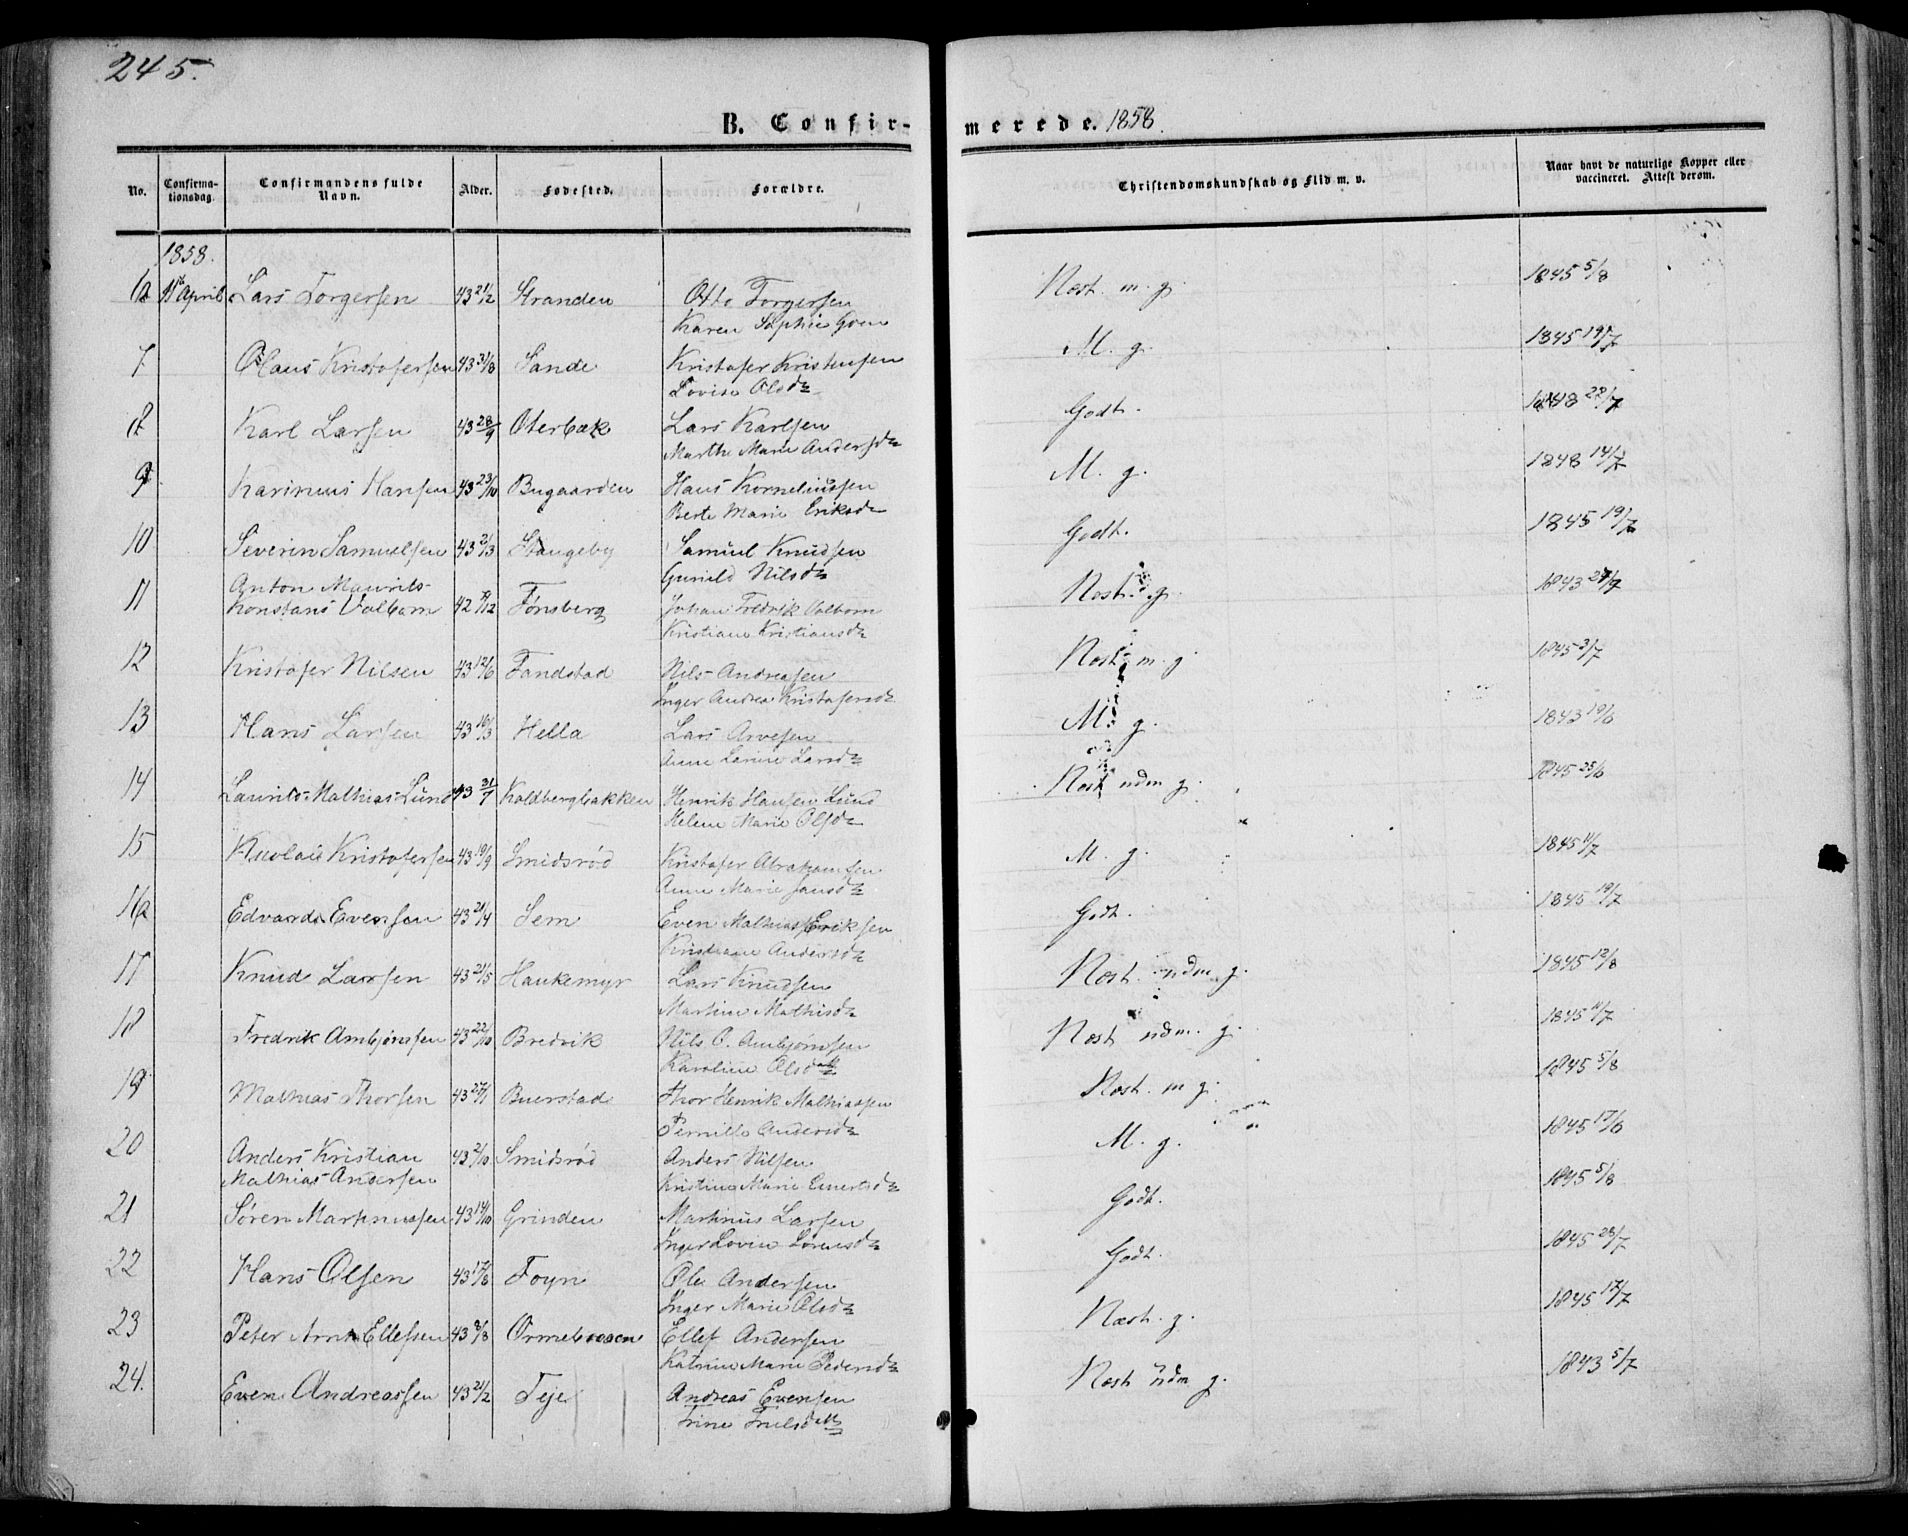 245.
B. Confirmerede. 1858.
No. Confirmationsdag. Confirmandens fulde Navn. Alder. Fødested. Forældre. Christendomskundskab og Flid m. v. Naar havt de naturlige Kopper eller vaccineret. Attest derom.
1858.
6 11 April Lars Torgersen 43 21/2 Stranden Otto Torgersen Næst. m. g. 1845 5/8
Karen Sophie
7 Olaus Kristofersen 43 31/8 Sande Kristofer Kristensen M. g. 1845 19/7
Lovise Olsd
8 Karl Larsen 43 28/9 Oterbæk Lars Karlsen Godt. 1848 22/7
Marthe Marie Andersd
9 Karinius Hansen 43 23/10 Bugaarden Hans Korneliussen M. g. 1848 14/7
Berte Marie Eriksd
10 Severin Samuelsen 43 2/3 Stangeby Samuel Knudsen Godt. 1845 19/7
Gunild Nilsd
11 Anton Maurits 1843 27/9
Konstans Valbom 42 /12 Tønsberg Johan Fredrik Valbom Næst. g.
Kristiane Kristiansd
12 Kristofer Nilsen 43 12/6 Tandstad Nils Andreasen Næst. m. g. 1845 3/7
Inger Andrea Kristofersd
13 Hans Larsen 43 16/3 Hella Lars Arvesen M. g. 1843 19/6
Anne Larine Larsd
14 Laurits Mathias Lund 43 31/7 Koldbergbakken Henrik Hansen Lund Næst udm g. 1845 25/6
Helene Marie Olsd
15 Nicolai Kristofersen 43 19/9 Smidsrød Kristofer Abrahamsen M. g. 1845 11/7
Anne Marie Jansd
16 Edvard Evensen 43 21/4 Sem Even Mathias Eriksen Godt. 1845 19/7
Kristiane Andersd
17 Knud Larsen 43 21/5 Haukemyr Lars Knudsen Næst. udm. g. 1845 12/8
Martine Mathisd
18 Fredrik Ambjørnsen 43 22/10 Bredvik Nils O. Ambjørnsen Næst udm. g. 1845 11/7
Karoline Olsdatt
19 Mathias Thorsen 43 27/1 Buerstad Thor Henrik Mathiassen Næst. m g. 1845 5/8
Pernille Andersd
20 Anders Kristian 43 2/10 Smidsrød Anders Nilsen M. g. 1845 17/6
Mathias Andersen Kristine Marie Einertsd
21 Søren Martinussen 43 14/10 Grinden Martinus Larsen Godt. 1845 5/8
Inger Lovise Sørensd
22 Hans Olsen 43 17/8 Foyn Ole Andersen Godt. 1845 23/7
Inger Marie Olsd
23 Peter Arnt Ellefsen 43 8/8 Ormelveien Ellef Andersen Næst. g. 1845 17/7
Katrine Marie Pedersd
24. Even Andreassen 43 21/2 Teje Andreas Evensen Næst udm g. 1843 5/7
Trine Trulsdatt